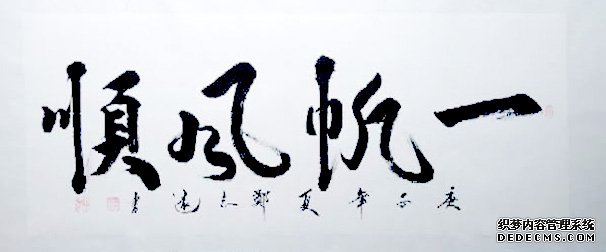 一帆風順
庚子年夏鄭志遠書
织梦内容管理系统
DEDECMS.COM